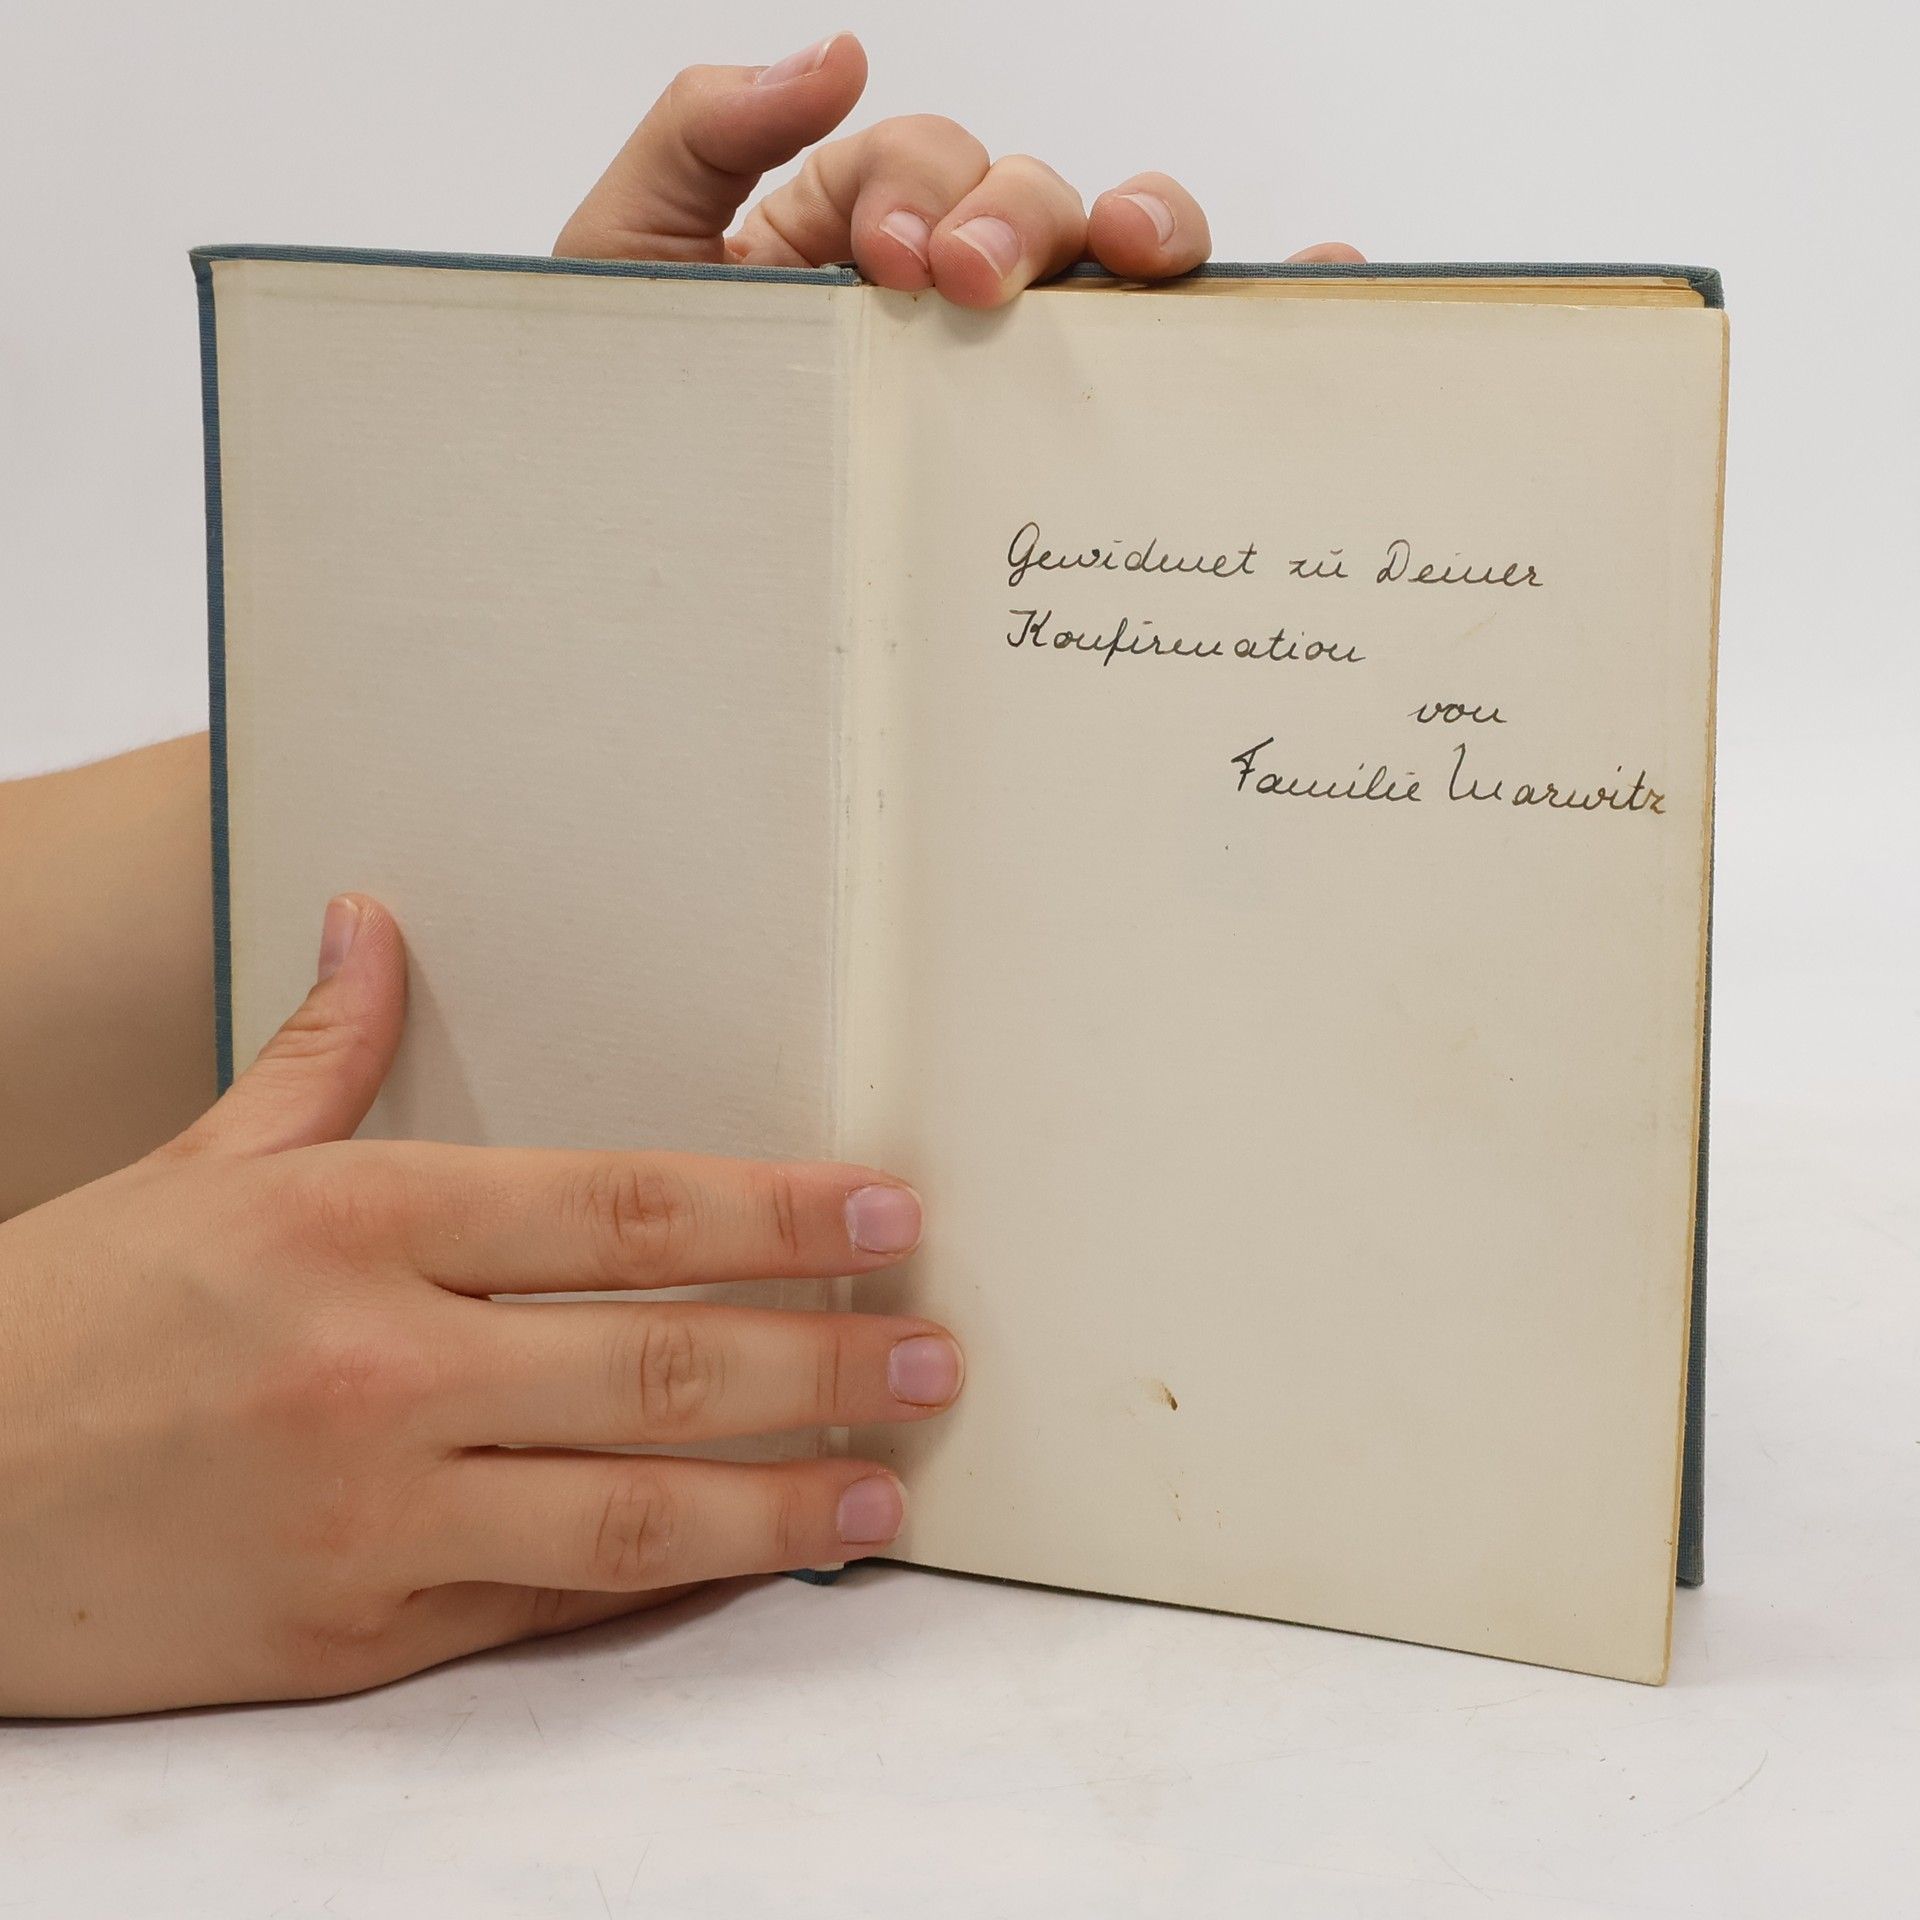 Gewidmet zu Deiner
Konfirmation
von
Familie Marwitz